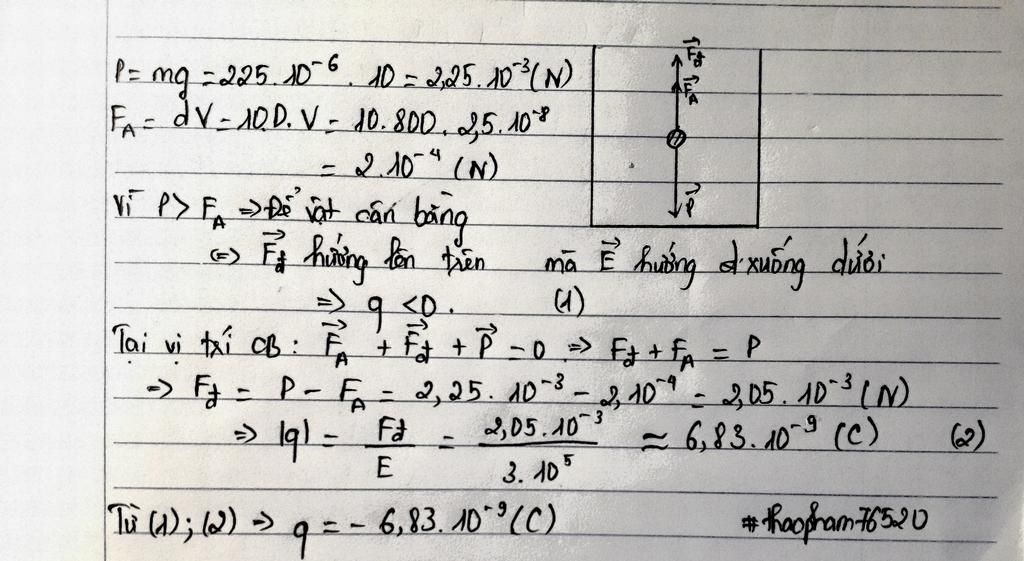 P = mg = 225.10⁻⁶.10 = 2,25.10⁻³(N)
F_A = dV = 10D.V = 10.800.2,5.10⁻⁸
= 2.10⁻⁴ (N)
Vì P > F_A => Để vật cân bằng
<=> F⃗_đ hướng lên trên mà E⃗ hướng xuống dưới
=> q < 0. (1)
Tại vị trí CB: F⃗_A + F⃗_đ + P⃗ = 0 => F_đ + F_A = P
=> F_đ = P - F_A = 2,25.10⁻³ - 2,10⁻⁴ = 2,05.10⁻³(N)
=> |q| = F_đ/E = 2,05.10⁻³/3.10⁵ ≈ 6,83.10⁻⁹ (C) (2)
Từ (1); (2) => q = - 6,83.10⁻⁹(C)
#thaopham76520
F⃗_đ
F⃗_A
P⃗